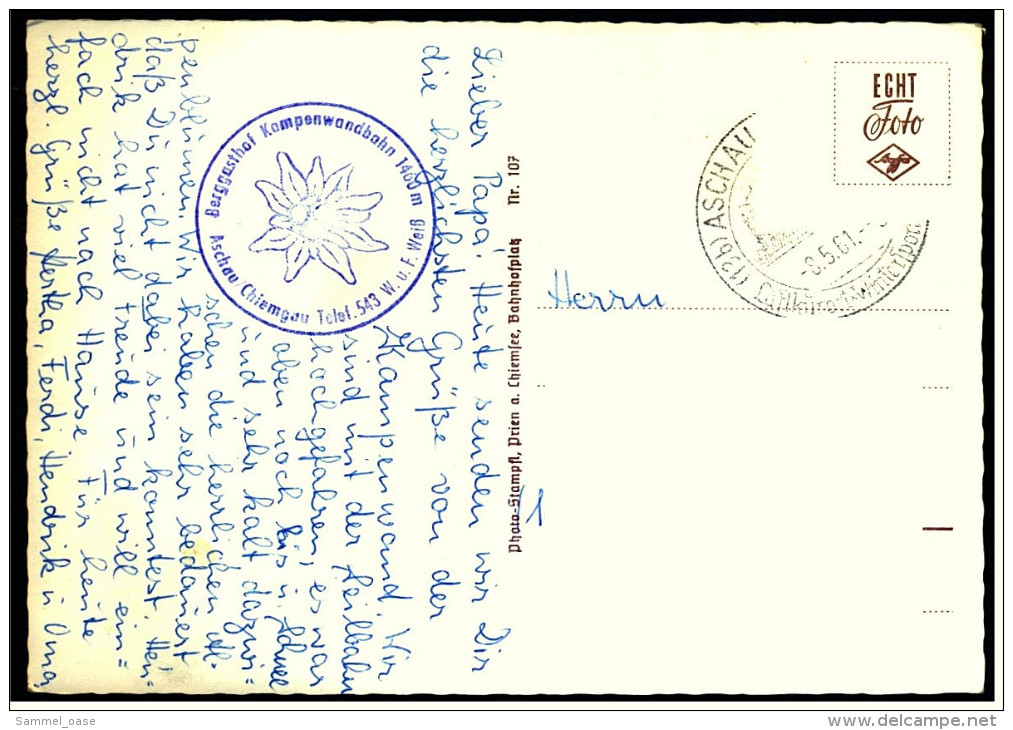 Lieber Papa! Heute senden wir Dir
die herzlichsten Grüße von der
Kampenwand. Wir
sind mit der Seilbahn
hochgefahren, es war
oben noch Eis u. Schnee
und sehr kalt dazwi=
schen die herrlichen Al-
penblumen. Wir haben sehr bedauert
daß Du nicht dabei sein konntest. Hen-
drik hat viel Freude und will ein=
fach nicht nach Hause. Für heute
herzl. Grüße Hertha, Ferdi, Hendrik u. Oma
Berggasthof Kampenwandbahn 1460 m
Aschau/Chiemgau Telef. 543 W. u. F. Weiß
Photo-Stampfl, Prien a. Chiemsee, Bahnhofplatz Nr. 107
11
ECHT
Foto
Agfa
(13b) ASCHAU
-8.5.61.-
Luftkurort Wintersport
Herrn
Sammel_oase
www.delcampe.net